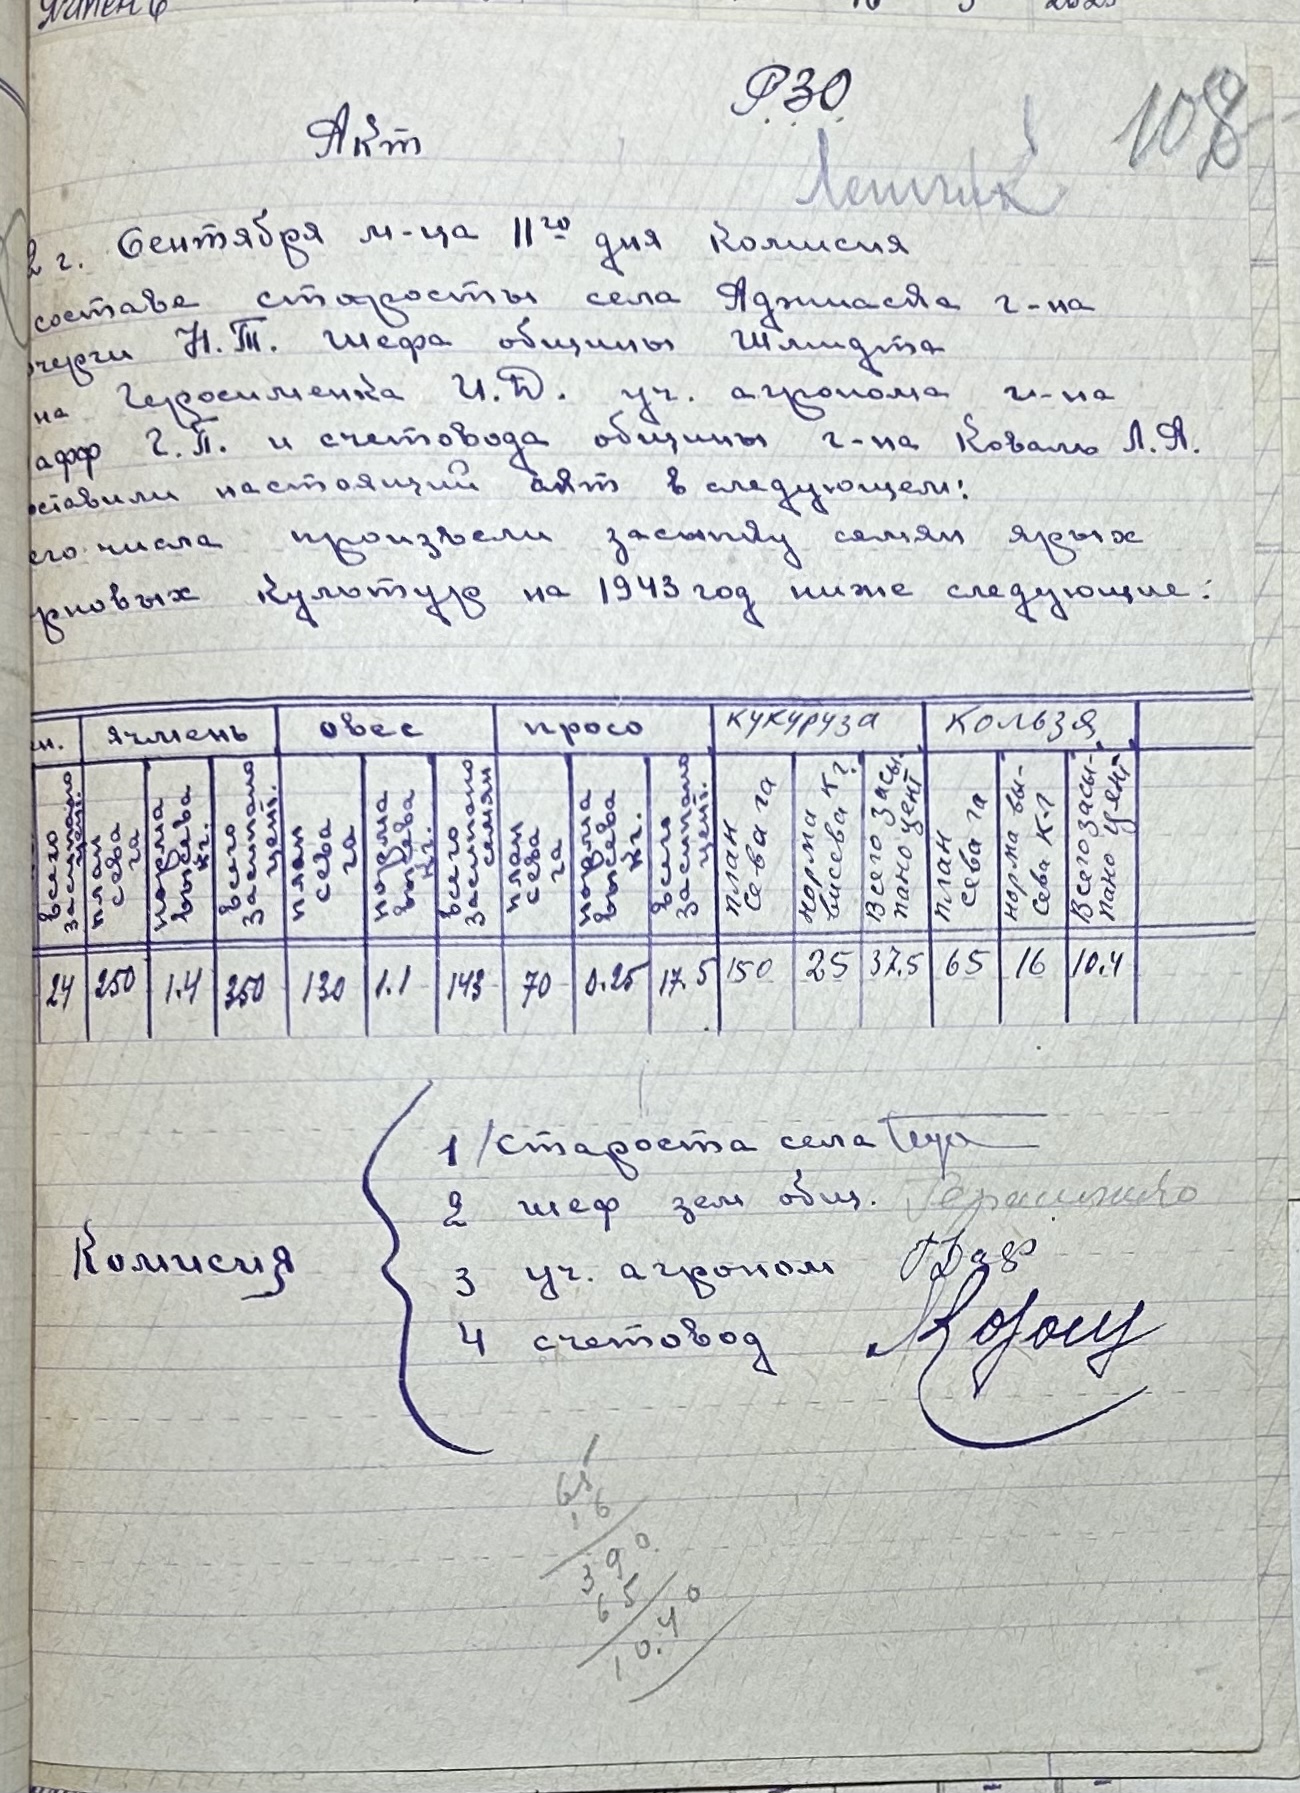 РЗО
108
Акт
2 г. Сентября м-ца 11го дня Комисия
составе старосты села Аджиаска г-на
Н.Т. шефа общины Шмидта
на Герасименка И.Д. уч. агронома г-на
афф Г.П. и счетовода общины г-на Коваль Л.А.
оставили настоящий акт в следующем:
его числа произвели засыпку семян ярых
рновых культур на 1943 год ниже следующие:
ен. ячмень овес просо кукуруза кользя
всего засыпано цен. план сева га норма высева кг. всего засыпано цент. план сева га норма высева кг. всего засыпано семян план сева га норма высева кг. всего засыпано цент. план сева га норма висева кг. Всего засы-пано цент план сева га норма вы-сева кг Всего засы-пано цент
24 250 1.4 350 130 1.1 143 70 0.25 17.5 150 25 37.5 65 16 10.4
Комисия
1/ староста села
2 шеф зем общ. Герасименко
3 уч. агроном
4 счетовод
65
16
390
65
10.40